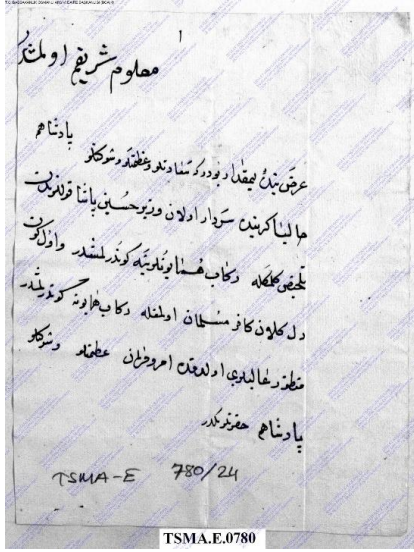 ١
معلوم شريفم اولمشدر
پادشاهم
عرض بنده بيمقدار بودركه سعادتلو و عظمتلو و شوكتلو
حاليا كريده سردار اولان وزير حسين پاشا قوللرندن
تلخيص كلمكله ركاب همايونلرينه كوندرلمشدر و اول كون
دل كلان كافر مسلمان اولمغله ركاب همايونه كوندرلمشدر
منظور عاليلري اولدقده امر و فرمان عظمتلو و شوكتلو
پادشاهم حضرتلرينكدر
TSMA-E 780/24
TSMA.E.0780